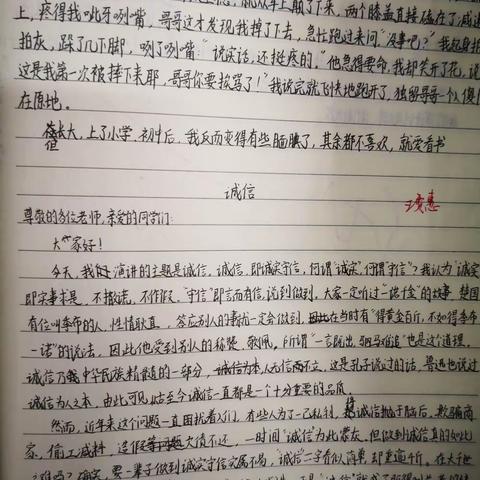 上,疼得我呲牙咧嘴,哥哥这才发现我掉了下去,急忙跑过来问"没事吧?"我起身拍
拍灰,跺了几下脚,咧了咧嘴:"说实话,还挺疼的。"他急得要命,我却笑开了花,说
这是我第一次被摔下来耶,哥哥你要挨骂了!"我说完就飞快地跑开了,独留哥哥一个人傻
在原地。
但长大,上了小学、初中后,我反而变得有些腼腆了,其余都不喜欢,就爱看书
诚信
尊敬的各位老师,亲爱的同学们:
大家好!
今天,我演讲的主题是诚信。诚信,即诚实守信,何谓"诚实",何谓"守信"?我认为"诚实"
即实事求是,不撒谎,不作假。"守信"即言而有信,说到做到,大家一定听过"一诺千金"的故事,楚国
有位叫季布的人,性情耿直,答应别人的事情一定会做到,因此在当时有"得黄金百斤,不如得季布
一诺"的说法,因此他受到别人的称赞、敬佩。所谓"一言既出,驷马难追"也是这个道理。
诚信乃我中华民族精髓的一部分,诚信为本,人无信而不立,这是孔子说过的话,鲁迅也说过
诚信为人之本,由此可见,古至今诚信一直都是一个十分重要的品质。
然而,近年来这个问题一直困扰着人们,有些人为了一己私利,将诚信抛于脑后,欺骗商
家,偷工减料,造假等问题,欠债不还,一时间"诚信"为此蒙灰,但做到诚信真的如此